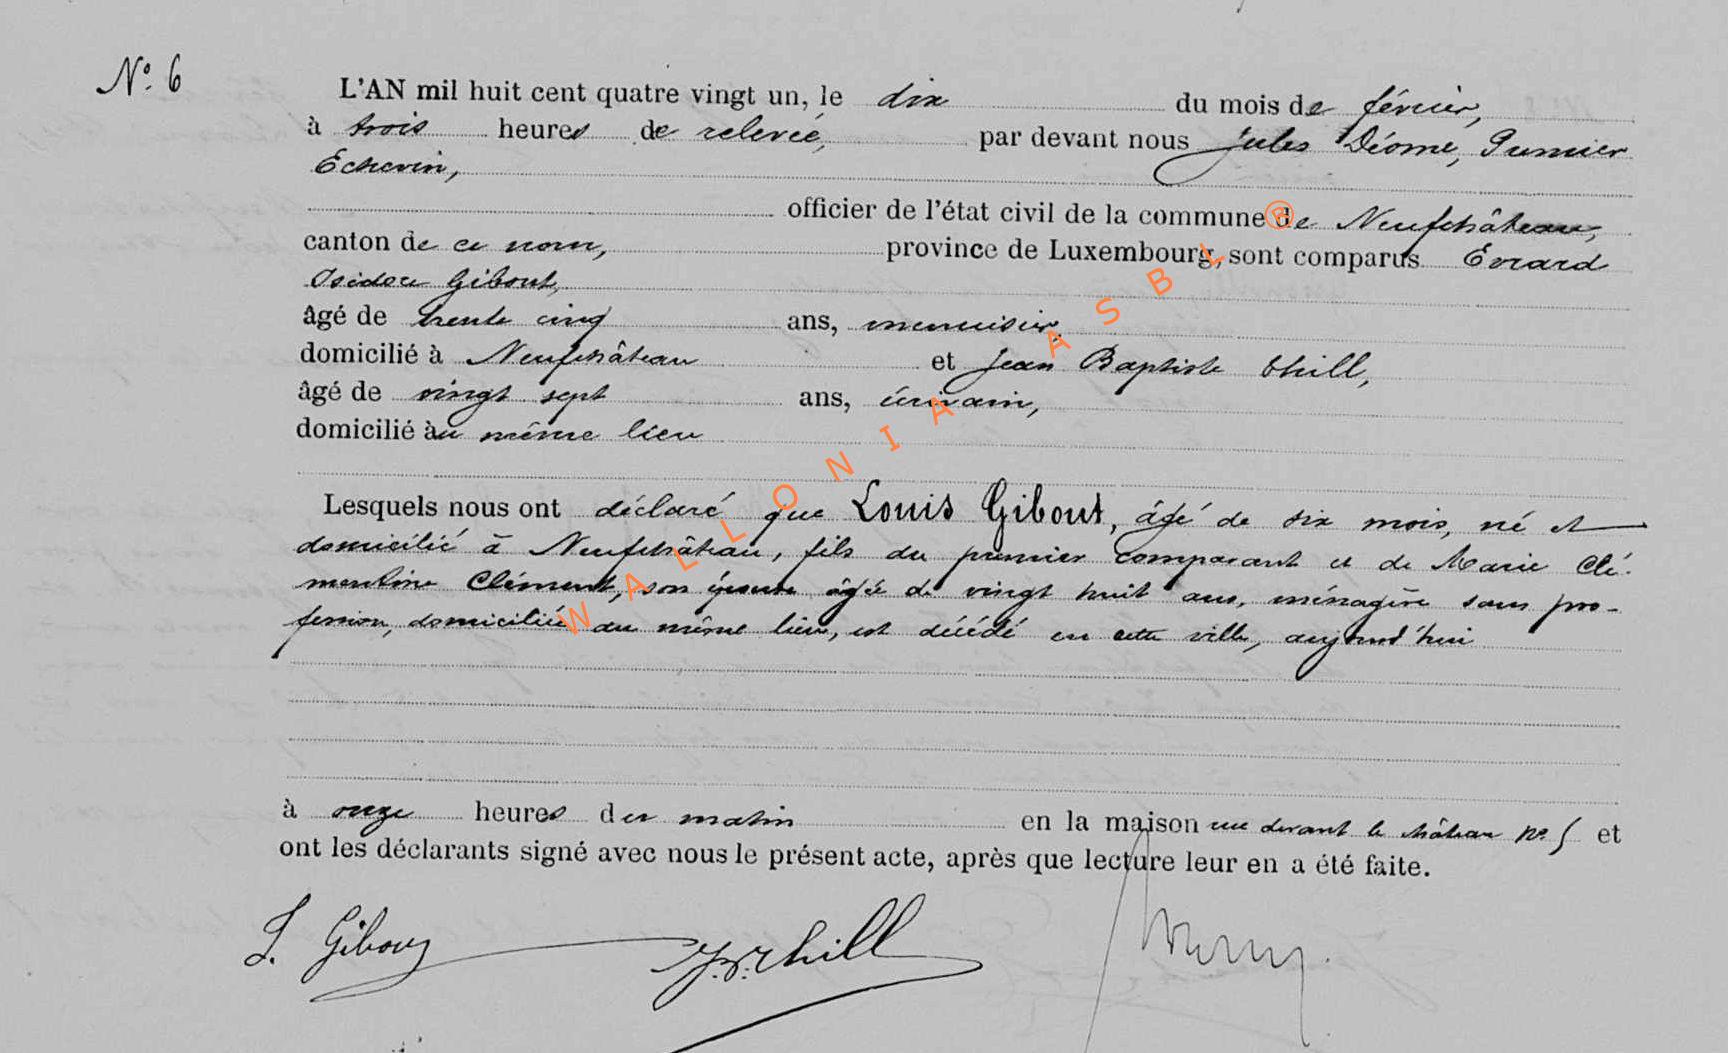 N° 6
L'AN mil huit cent quatre vingt un, le dix du mois de février,
à trois heures de relevée, par devant nous Jules Déome, Premier
Echevin,
officier de l'état civil de la commune de Neufchâteau,
canton de ce nom, province de Luxembourg, sont comparus Evrard
Isidore Gibout,
âgé de trente cinq ans, menuisier
domicilié à Neufchâteau et Jean Baptiste Thill,
âgé de vingt sept ans, écrivain,
domicilié au même lieu
Lesquels nous ont déclaré que Louis Gibout, âgé de six mois, né et
domicilié à Neufchâteau, fils du premier comparant et de Marie Clé-
mentine Clément, son épouse âgée de vingt huit ans, ménagère sans pro-
fession, domiciliée au même lieu, est décédé en cette ville, aujourd'hui
à onze heures du matin en la maison rue devant le château n° 5 et
ont les déclarants signé avec nous le présent acte, après que lecture leur en a été faite.
Gibout J.B. Thill
WALLONIA ASBL ®